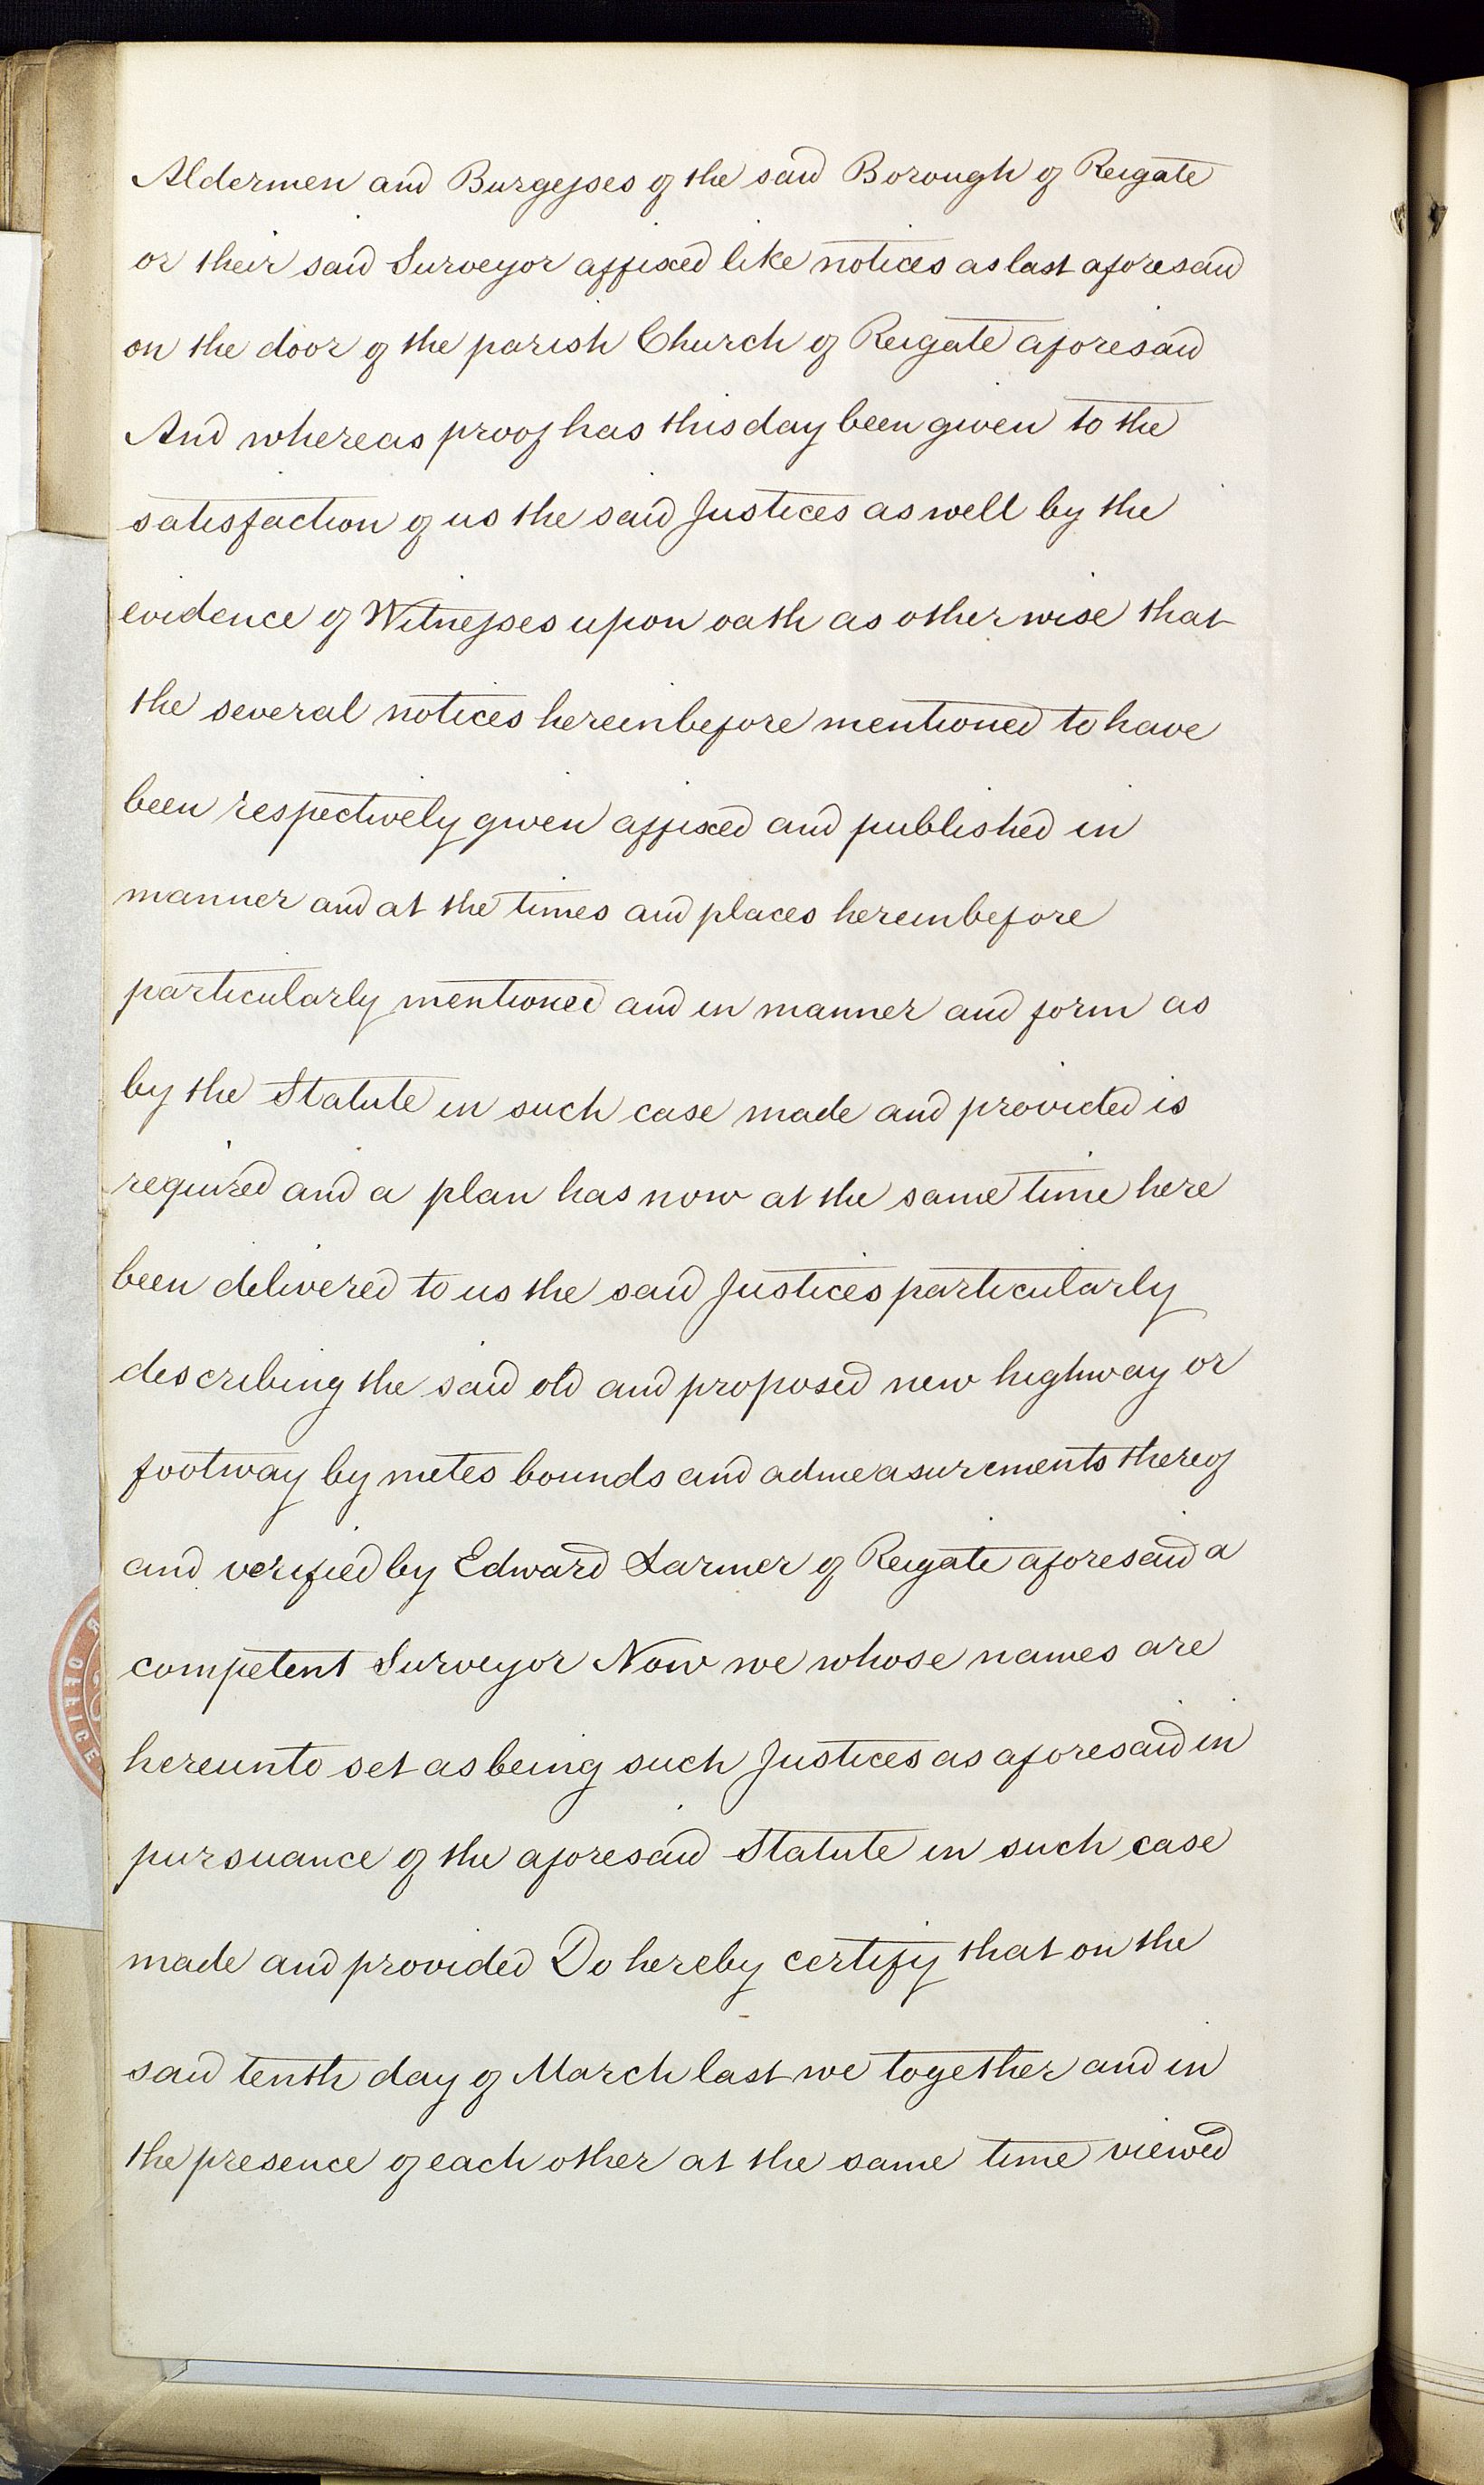 Aldermen and Burgesses of the said Borough of Reigate
or their said Surveyor affixed like notices as last aforesaid
on the door of the parish Church of Reigate aforesaid
And whereas proof has this day been given to the
satisfaction of us the said Justices as well by the
evidence of Witnesses upon oath as otherwise that
the several notices hereinbefore mentioned to have
been respectively given affixed and published in
manner and at the times and places hereinbefore
particularly mentioned and in manner and form as
by the Statute in such case made and provided is
required and a plan has now at the same time here
been delivered to us the said Justices particularly
describing the said old and proposed new highway or
footway by metes bounds and admeasurements thereof
and verified by Edward Larmer of Reigate aforesaid a
competent Surveyor Now we whose names are
hereunto set as being such Justices as aforesaid in
pursuance of the aforesaid Statute in such case
made and provided Do hereby certify that on the
said tenth day of March last we together and in
the presence of each other at the same time viewed